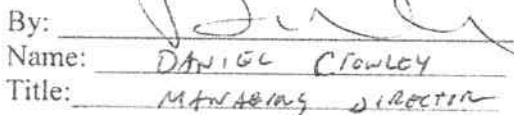 By:
Name: DANIEL CROWLEY
Title: MANAGING DIRECTOR